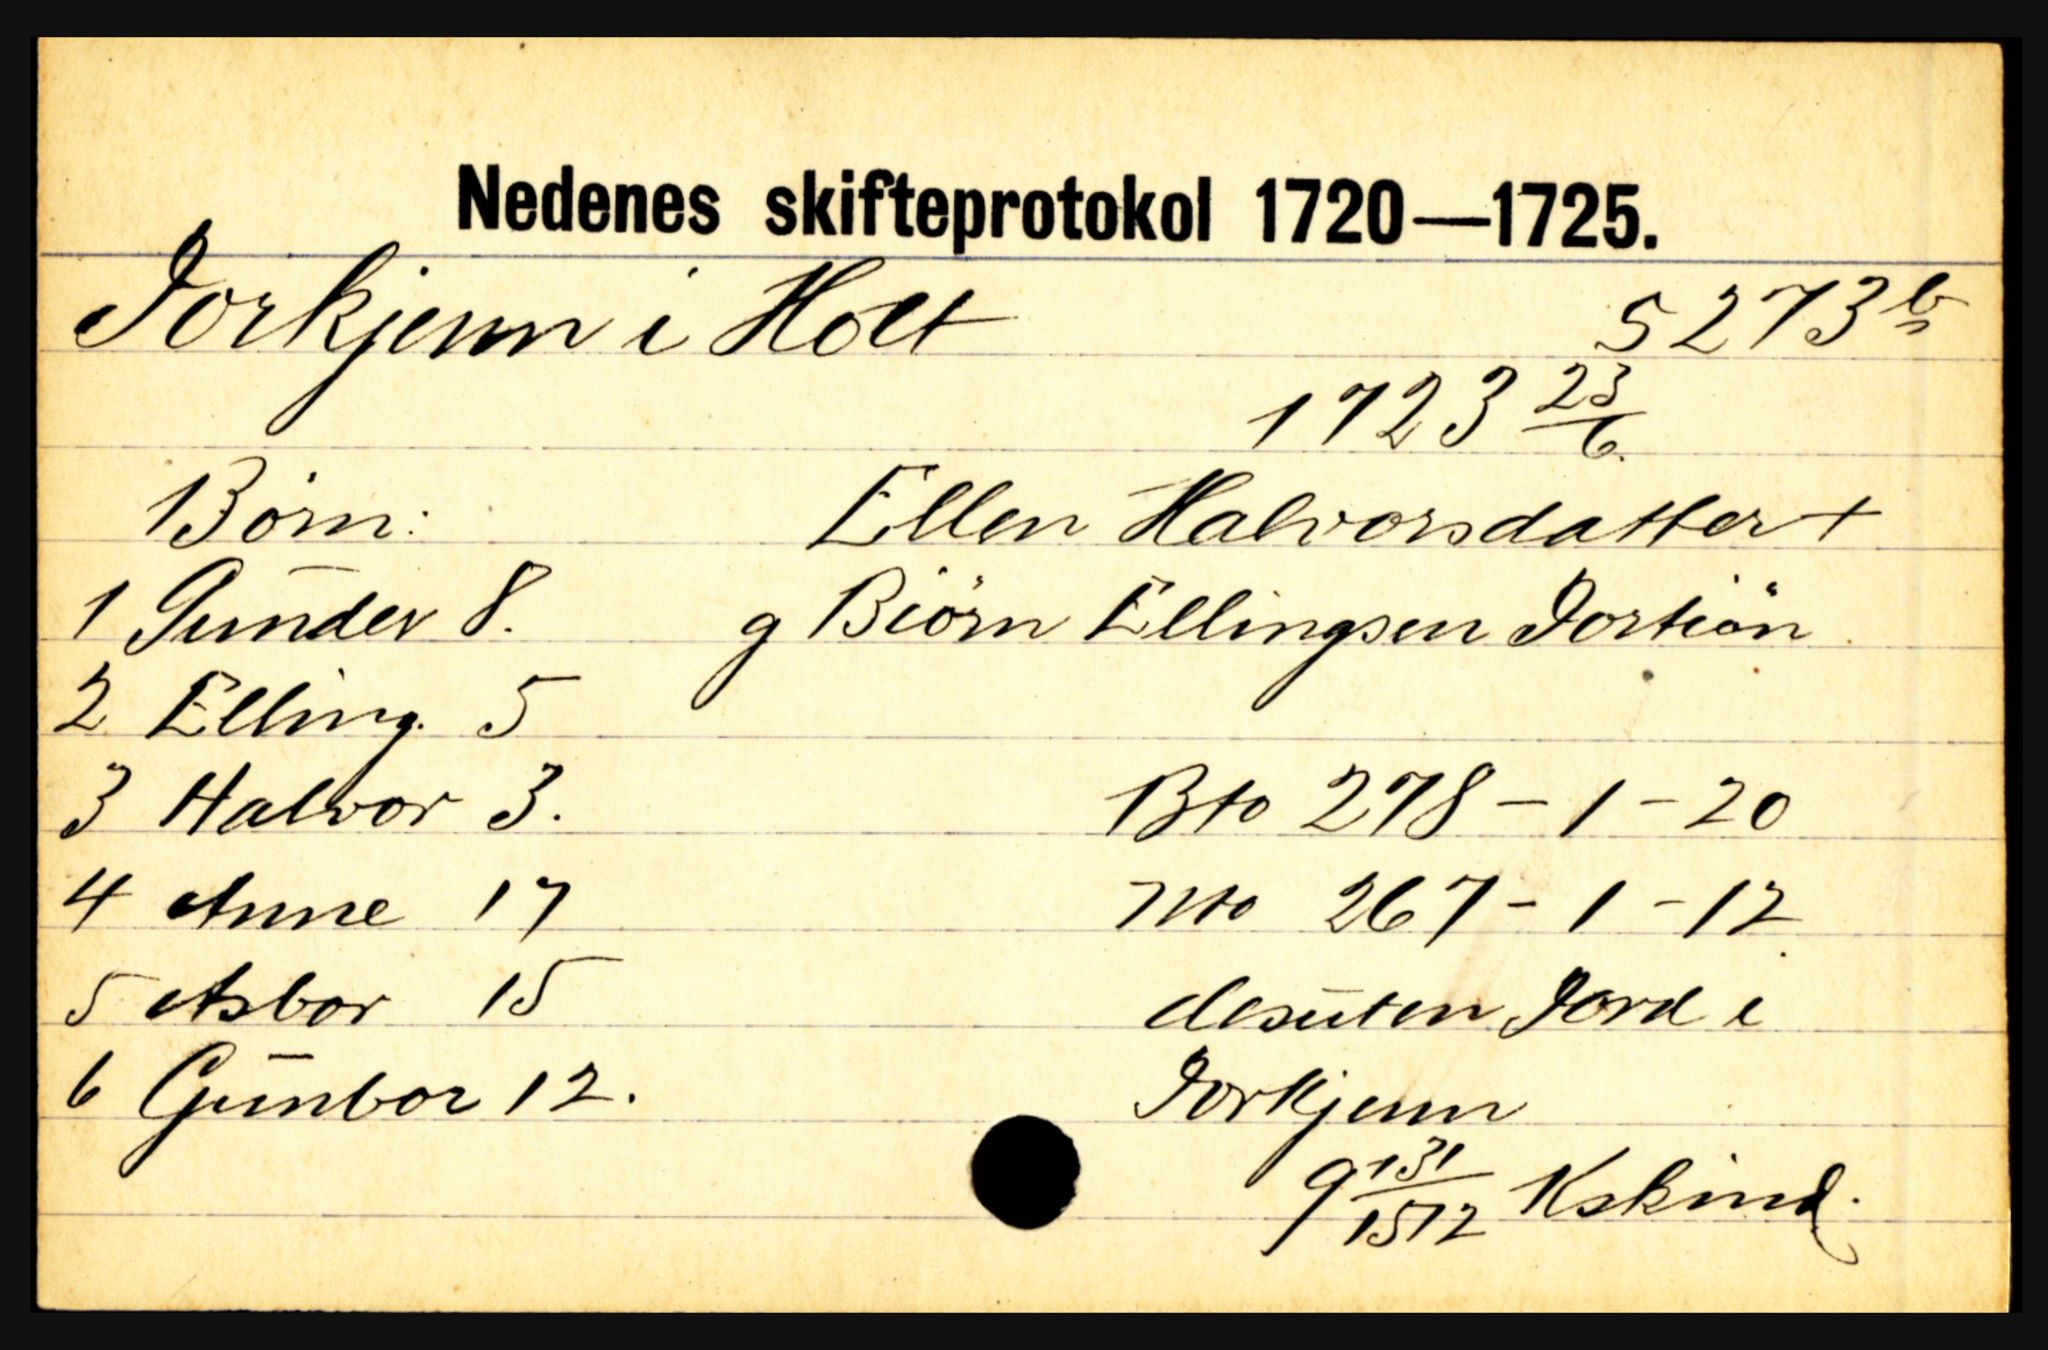 Nedenes skifteprotokol 1720—1725.
Jorkjenn i Holt 5273 b
1723 23/6.
Börn: Ellen Halvorsdatter +
1 Gunder 8. g Biörn Ellingsen Jortiön
2 Elling. 5
3 Halvor 3. Bto 278 – 1 – 20
4 Anne 17 Nto 267 – 1 – 12
5 Asbor 15 desuten Jord i
6 Gunbor 12. Jorkjenn
9 131/1512 Kskind.